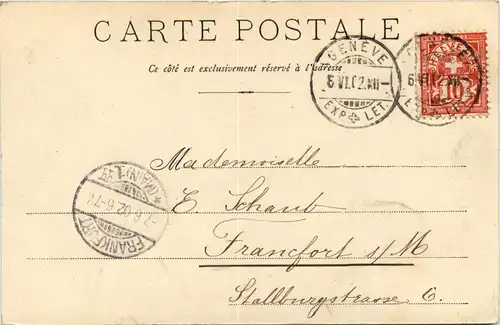 CARTE POSTALE
Ce côté est exclusivement réservé à l'adresse
GENÈVE
6 VI.02.XII
EXP. LET.
10
Mademoiselle
E. Schaub
Francfort s/M
Stallburgstrasse 6.
FRANKFURT
(MAIN) 1.
7.6.02.6-7